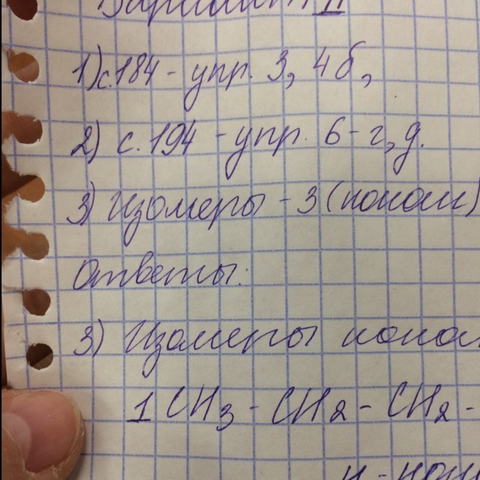 Вариант II
1) с.184 - упр. 3, 4б,
2) с. 194 - упр. 6-г, д.
3) Изомеры - 3 (нонан)
Ответы:
3) Изомеры нона
1 CH3 - CH2 - CH2 -
н - нон